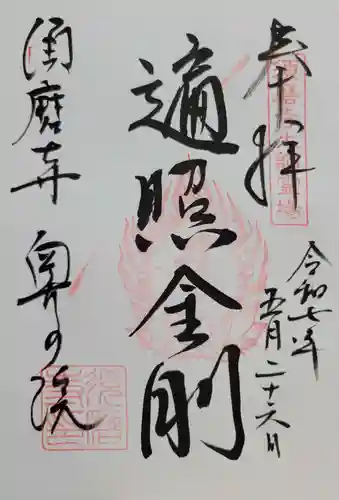 奉拝
令和七年
五月二十六日
遍照金剛
須磨寺 奥の院